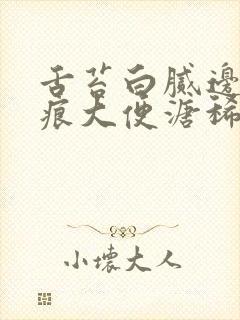 舌苔白腻邊
痕大便溏稀
小壞大人